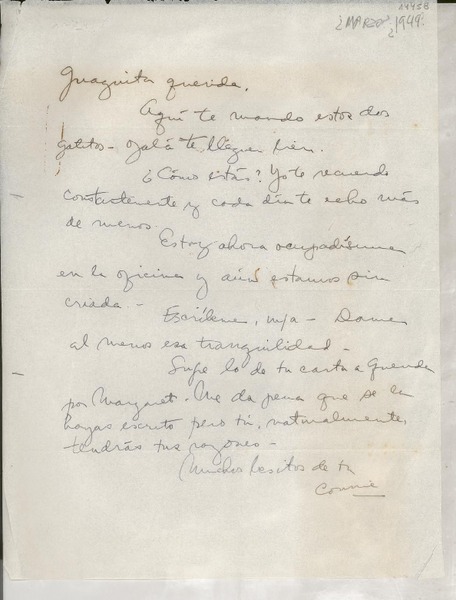 ¿MARZO? ¿1949?
Guaguita querida,
Aquí te mando estos dos
gatitos – ojalá te lleguen bien.
¿Cómo estás? Yo te recuerdo
constantemente y cada día te echo más
de menos.
Estoy ahora ocupadísima
en la oficina y aún estamos sin
criada –
Escríbeme, m/a – Dame
al menos esa tranquilidad –
Supe lo de tu carta a
por Margaret. Me da pena que se la
hayas escrito pero tú, naturalmente,
tendrás tus razones –
Muchos besitos de tu
Connie